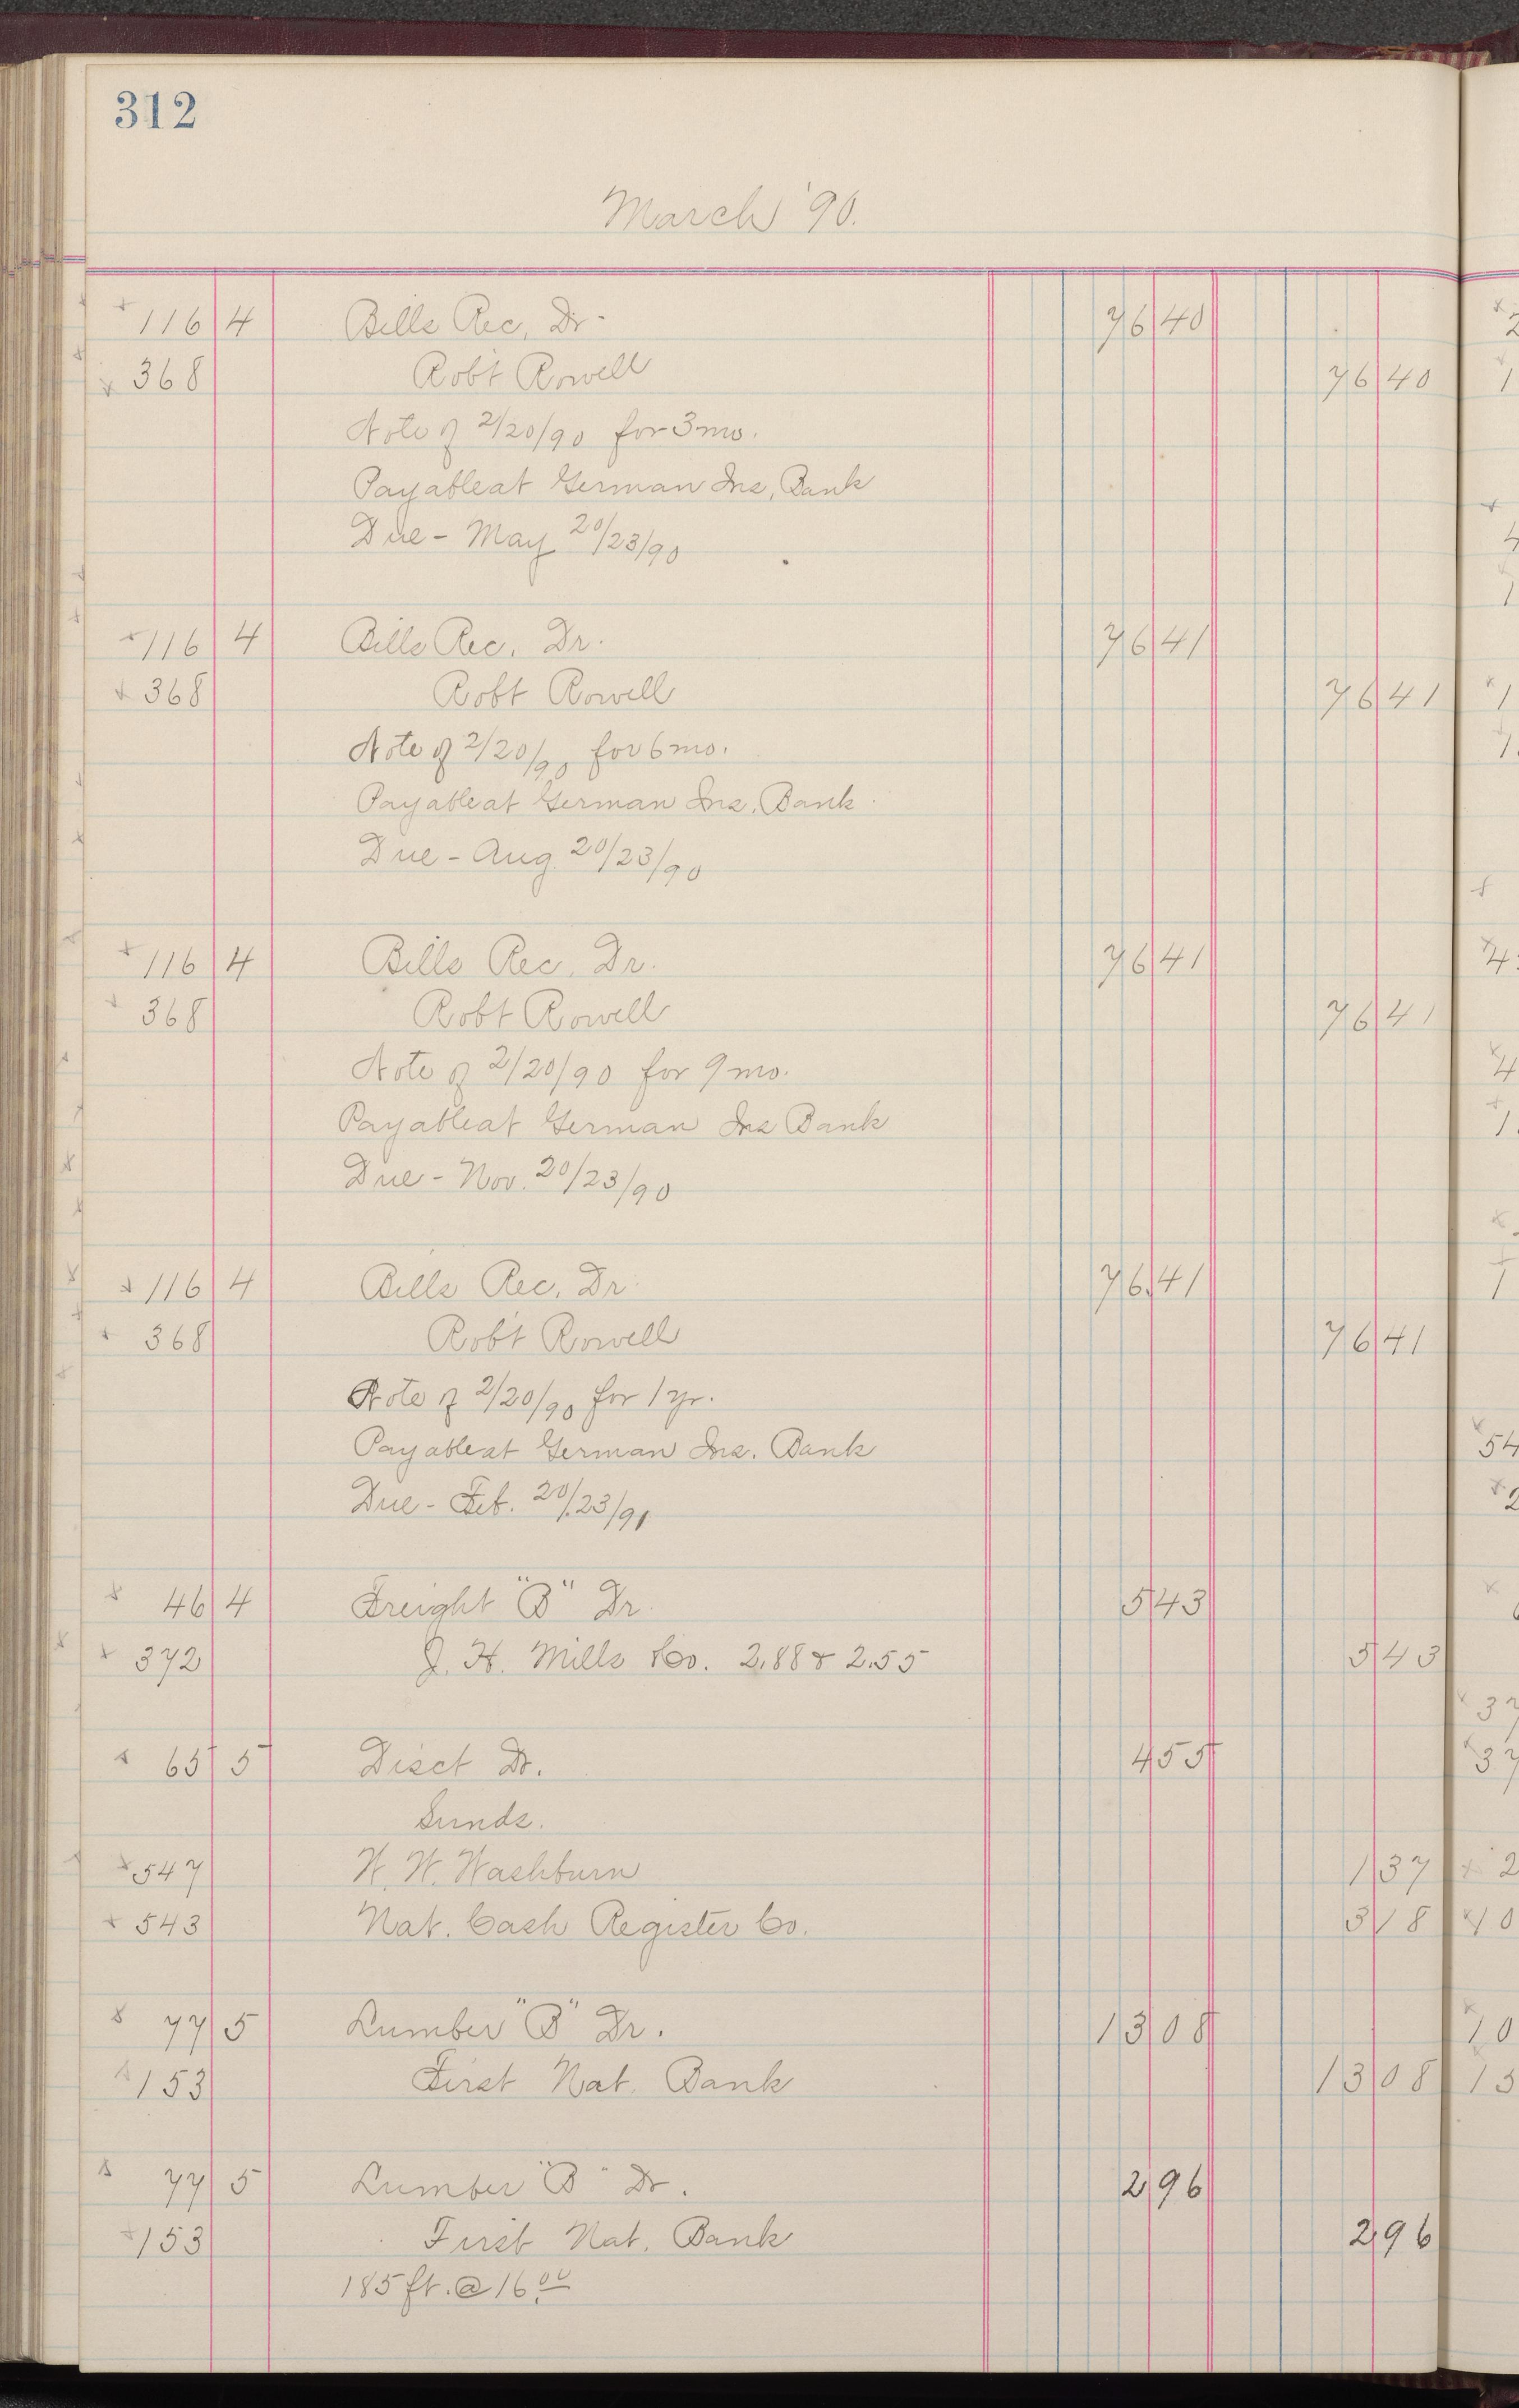 312
March '90.
116 4 Bills Rec, Dr. 76 40
368 Rob't Rowell 76 40
Note of 2/20/90 for 3 mo.
Payable at German Ins, Bank
Due - May 20/23/90
116 4 Bills Rec. Dr. 76 41
368 Robt Rowell 76 41
Note of 2/20/90 for 6 mo.
Payable at German Ins. Bank
Due - Aug 20/23/90
116 4 Bills Rec. Dr. 76 41
368 Robt Rowell 76 41
Note of 2/20/90 for 9 mo.
Payable at German Ins Bank
Due - Nov. 20/23/90
116 4 Bills Rec. Dr. 76 41
368 Rob't Rowell 76 41
Note of 2/20/90 for 1 yr.
Payable at German Ins. Bank
Due - Feb. 20/23/91
46 4 Freight "B" Dr. 5 43
372 J. H. Mills & Co. 2.88 & 2.55 5 43
65 5 Disct Dr. 4 55
Sunds.
547 W. W. Washburn 1 37
543 Nat. Cash Register Co. 3 18
77 5 Lumber "B" Dr. 13 08
153 First Nat. Bank 13 08
77 5 Lumber "B" Dr. 2 96
153 First Nat. Bank 2 96
185 ft. @ 16 00